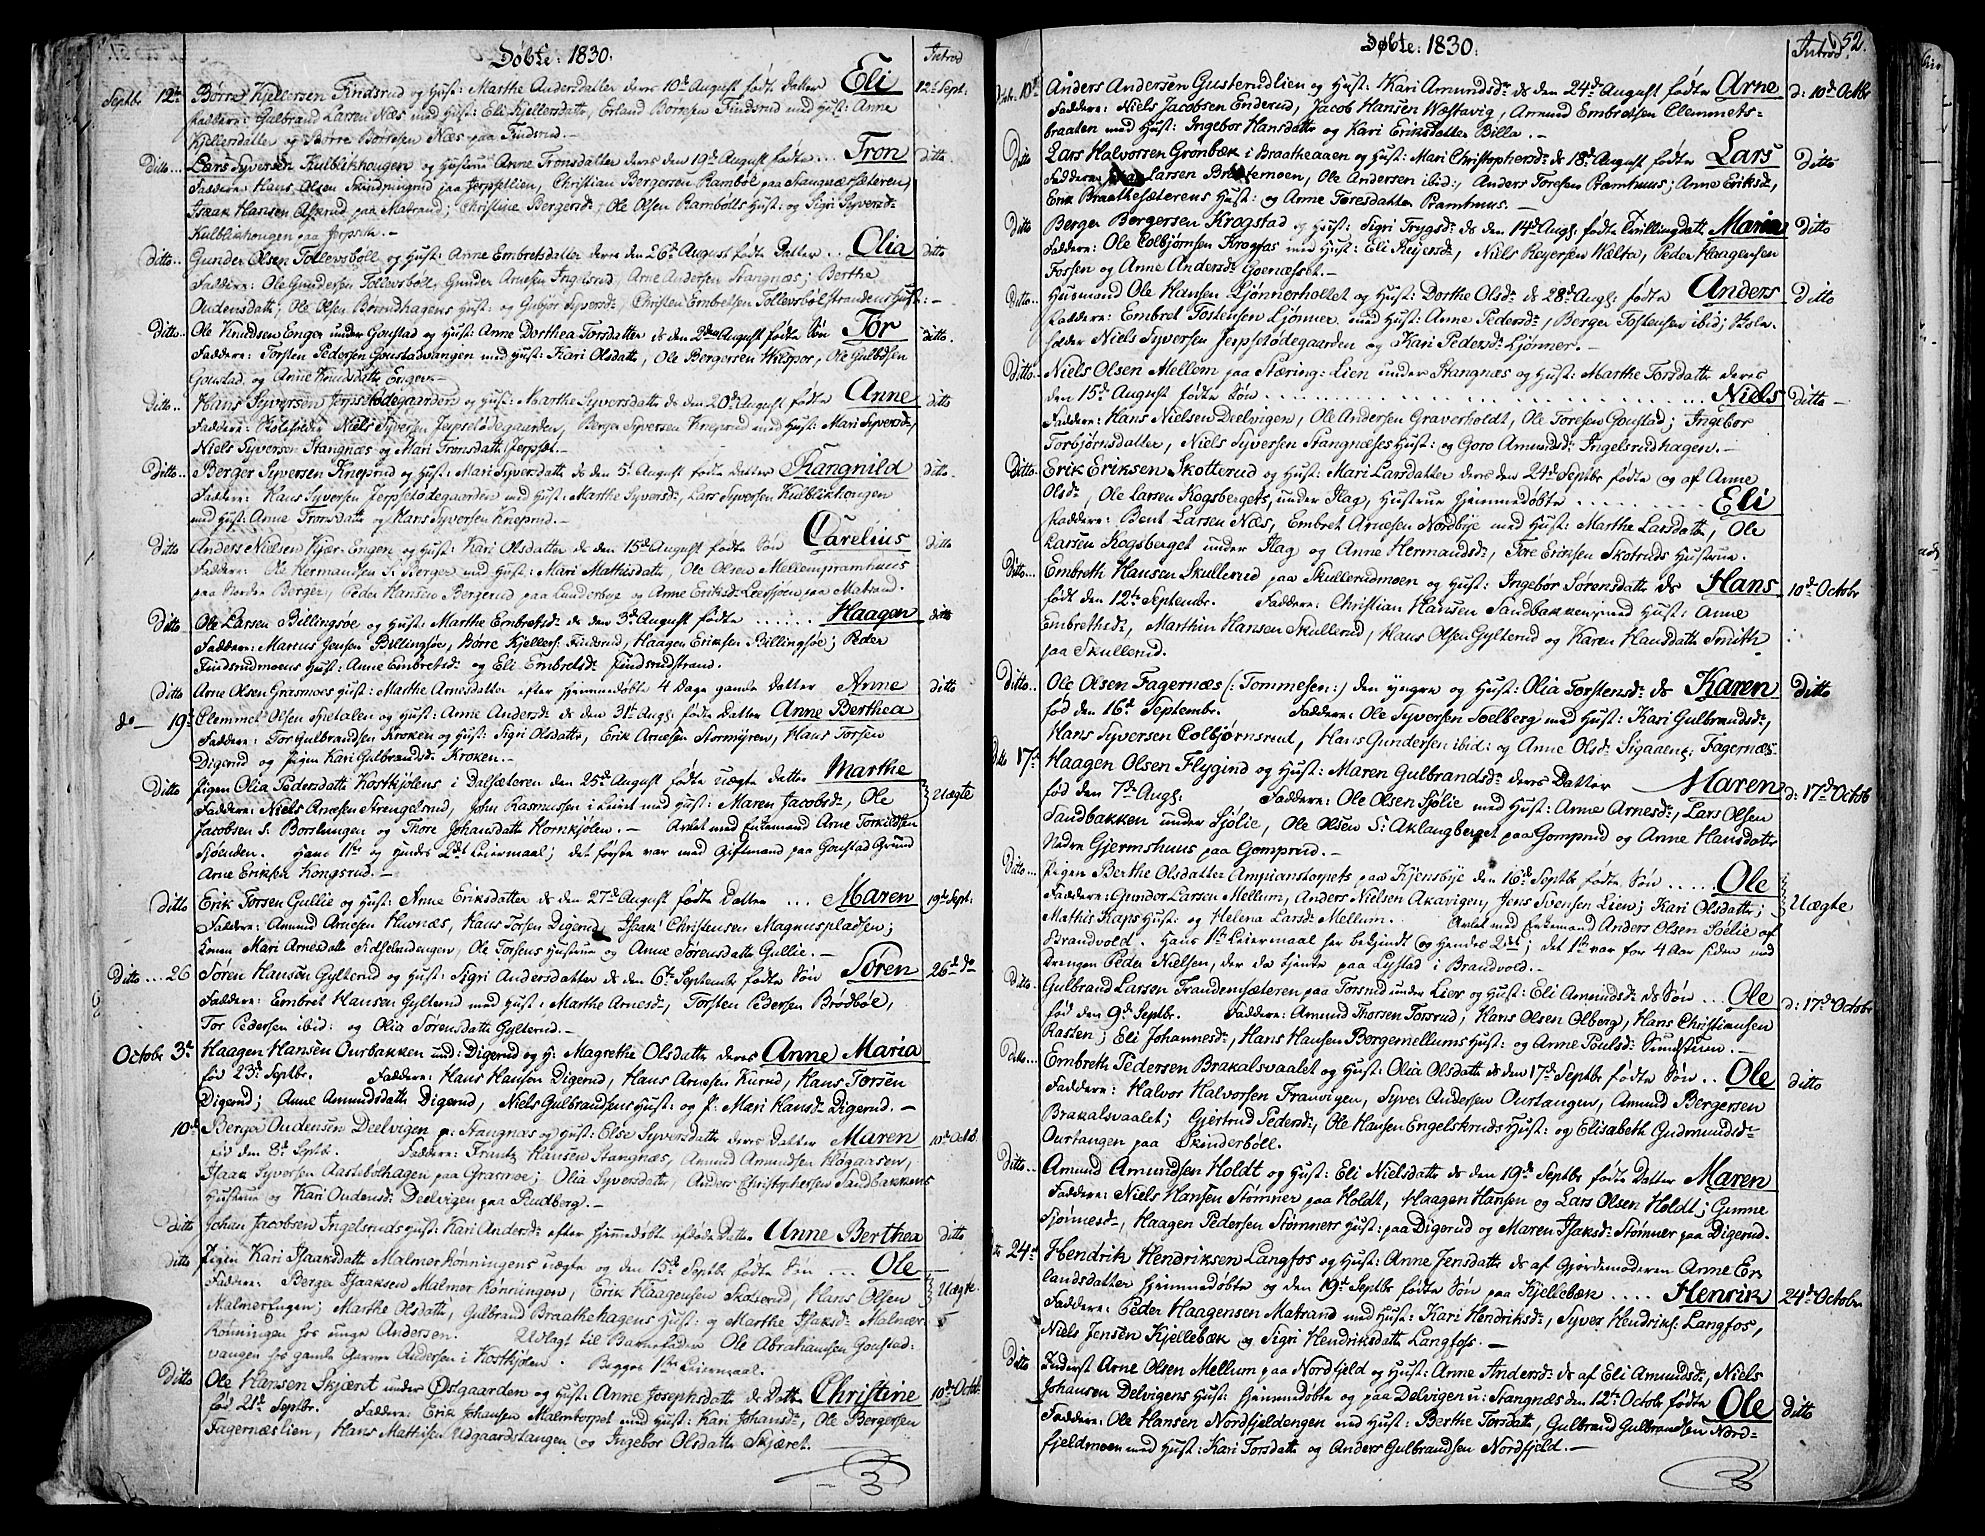 Døbte: 1830.
Introd
Septbr 12te Børre Kjellersen Findsrud og Hust: Marthe Andersdatter deres 10d August fødte Datter Eli 12te Sept:
Faddere: Gulbrand Larsen Næs med Hust: Eli Kjellersdatter, Erland Bornsen Findsrud med Hust: Anne
Kjellersdatter og Børre Børresen Næs paa Findsrud.
Ditto Lars Syversen Kulblikhougen og Hustrue Anne Tronsdatter deres den 19d August fødte Tron ditto
Faddere: Hans Olsen paa Jerpsetlien, Christian Bergersen Rambøl paa Stangnæssæteren,
Isaak Hansen paa Matrand; Christine Bergersd:, Ole Olsen Rambølls Hust: og Sigri Syversd:
Kulblikhougen paa Jerpset.
Ditto Gunder Olsen Tollevsbøll og Hust: Anne Embretsdatter deres den 26d August fødte Datter Olia ditto
Faddere: Ole Gundersen Tollevsbøl, Gunder Arnesen Ingelsrud, Arne Andersen Stangnæs; Berthe
Audensdatt:, Ole Olsen Brøndhagens Hust: og Gubjør Syversd:, Christen Embretsen Tollevsbølstrandens Hust:
Ditto Ole Knudsen Enger under Goustad og Hust: Anne Dorthea Torsdatter de den 2den August fødte Søn Tor ditto
Faddere: Torsten Pedersen Goustadvangen med Hust: Kari Olsdatt:, Ole Bergersen Hilspor, Ole Gulbdsen
Goustad og Anne Knudsdatt: Enger.
Ditto Hans Syversen Jerpsetødegaarden og Hust: Marthe Syversdatt: de den 20d August fødte Anne ditto
Faddere: Skoleholder Niels Syversen Jerpsetødegaarden, Berger Syversen Kneprud med Hust: Mari Syversd:,
Niels Syversen Stangnæs og Mari Tronsdatt: Jerpset.
Ditto Berger Syversen Kneprud og Hust: Mari Syversdatt: de den 5d August fødte Datter Rangnild ditto
Faddere: Hans Syversen Jerpsetødegaarden med Hust: Marthe Syversd:, Lars Syversen Kulblikhougen
med Hust: Anne Tronsdatt: og Hans Syversen Kneprud.
Ditto Anders Nielsen Kjær-Engen og Hust: Kari Olsdatter de den 15d August fødte Søn Carelius ditto
Faddere: Ole Hermandsen S: Berger med Hust: Mari Mathisdatt:, Ole Olsen Mellempramhuus
paa Nordre Berger, Peder Hansen Bergerud paa Lunderbye og Anne Eriksd: Leersjøen paa Matrand.
Ditto Ole Larsen Billingsøe og Hust: Marthe Embretsd: de den 3d August fødte Haagen ditto
Faddere: Marcus Jensen Billingsøe, Børre Kjellers: Findsrud, Haagen Eriksen Billingsøe; Peder
Findsrudmoens Hust: Anne Embretsd: og Eli Embretsd: Findsrudstrand.
ditto Arne Olsen Grasmoes Hust: Marthe Arnesdatter efter Hjemmedøbte 4 Dage gamle Datter Anne ditto
do 19d Clemmet Olsen Spetalen og Hust: Anne Andersd: de den 31d Aug: fødte Datter Anne Berthea
Faddere: Tor Gulbrandsen Kroken med Hust: Sigri Olsdatt:, Erik Arnesen Stormyren, Hans Torsen
Digerud og Pigen Kari Gulbrandsd: Kroken.
Ditto Pigen Olia Pedersdatt: Kostkjølens i Dalsæteren den 25d August fødte uægte Datter Marthe Uægte
Faddere: Niels Arnesen Strengelsrud, John Rasmussen i Leiret med Hust: Maren Jacobsd:, Ole
Jacobsen S: Børslungen og Thore Johansdatt: Hornkjølen. Avlet med Enkemand Arne Torkildsen
Sjøenden. Hans 11te og Hendes 2det Leiermaal; det første var med Giftmand paa Goustad Grund
Arne Eriksen Kongsrud.
Ditto Erik Torsen Gullie og Hust: Anne Eriksdatter de den 27d August fødte Datter Maren 19d Sept:
Faddere: Amund Arnesen Huvnæs, Hans Torsen Digerud, Isaak Christensen Magnuspladsen;
Konen Mari Arnesdatt:, Ole Torsens Hustrue og Anne Sørensdatt: Gullie.
Ditto 26 Søren Hansen Gylterud og Hust: Sigri Andersdatter de den 6te Septembr fødte Søn Søren 26d do
Faddere: Embret Hansen Gylterud med Hust: Marthe Arnesd:, Torsten Pedersen Brødbøl,
Tor Pedersen ibid: og Olia Sørensdatt: Gylterud.
Octobr 3d Haagen Hansen Ourbakken und: Digerud og H: Magrethe Olsdatt: deres Anne Maria
fød 23d Septbr. Faddere: Hans Hansen Digerud, Hans Arnesen Kurud, Hans Torsen
Digerud; Anne Amundsdatt: Digerud, Niels Gulbrandsens Hust: og P: Mari Hansd: Digerud.
10d Berger Oudensen Deelvigen p: Stangnæs og Hust: Else Syversdatt: deres Datter Maren 10d Octb.
fød den 8d Septbr. Faddere: Frantz Hansen Stangnæs, Amund Amundsen Høgaasen,
Isaak Syversen Aastebølhagen paa Grasmoe; Olia Syversdatt:, Anders Christophersen Sandbakkens
Hustrue og Kari Oudensd: Deelvigen paa Rudberg.
Ditto Johan Jacobsen Ingelsruds Hust: Kari Andersd: efter Hjemmedøbte afdøde Datter Anne Berthea ditto
ditto Pigen Kari Isaaksdatt: Malmerrønningens uægte og den 15d Septbr fødte Søn Ole Uægte
Faddere: Berger Isaaksen Malmerrønningen, Erik Haagensen Skolsrud, Hans Olsen
MalmerEngen; Marthe Olsdatt:, Gulbrand Braathehagens Hust: og Marthe Isaksd: Malmer
Rønningen for unge Andersen. Udlagt til Barnefader Ole Abrahamsen Goustad-
vangen for gamle Garver Andersen i Kostkjølen. Begges 1te Leiermaal.
Ditto Ole Hansen Skjæret under Østgaarden og Hust: Anne Josephsdatt: de Datt: Christine 10d Octbr
fød 21d Septbr. Faddere: Erik Johansen Malmtorpet med Hust: Kari Johansd:, Ole Bergersen
Fagernæslien, Hans Mathisen Udgaardstangen og Ingebor Olsdatt: Skjæret.
Døbte: 1830.
Introd 52.
Octbr. 10d Anders Andersen Gusterudlien og Hust: Kari Amundsd: de den 24d August fødte Arne d: 10d Octbr
Faddere: Niels Jacobsen Enderud, Jacob Hansen Wæstavig, Amund Embretsen Clemmets-
braaten med Hust: Ingebor Hansdatt: og Kari Eriksdatter Billa.
Ditto Lars Halvorsen Grønbæk i Braatheaaen og Hust: Mari Christophersd: de 18d August fødte Lars Ditto
Faddere: Larsen Braatemoen, Ole Andersen ibid:, Anders Toresen Pramhuus; Anne Eriksd:,
Erik Braathesæterens Hust: og Anne Toresdatter Pramhuus.
Ditto Berger Bergersen Krogstad og Hust: Sigri Trygsd: de den 14d Aug: fødte Tvillingdatt: Maria Ditto
Faddere: Ole Colbjørnsen Krogfos med Hust: Eli Reyersd:, Niels Reyersen Wæltra, Peder Haagensen
Fossen og Anne Andersd: Goenæsset.
Ditto Husmand Ole Hansen Ljønnerholtet og Hust: Dorthe Olsd: de 28d Aug: fødte Anders Ditto
Faddere: Embret Tostensen Ljønner med Hust: Anne Pedersd:, Berger Tostensen ibid; Skole-
holder Niels Syversen Jerpsetødegaarden og Kari Pedersd: Ljønner.
Ditto Niels Olsen Mellom paa Stæring-Lien under Stangnæs og Hust: Marthe Torsdatt: deres
den 15d August fødte Søn Niels Ditto
Faddere: Hans Nielsen Deelvigen, Ole Andersen Graverholdt, Ole Toresen Goustad; Ingebor
Torbjørnsdatter, Niels Syversen Stangnæses Hust: og Goro Amundsd: Ingelsrudhagen.
Ditto Erik Eriksen Skotterud og Hust: Mari Larsdatter deres den 24d Septbr fødte og af Anne
Olsd:, Ole Larsen Kogsbergets, under Flag, Hustrue hjemmedøbte Eli
Faddere: Bent Larsen Næs, Embret Arnesen Nordbye med Hust: Marthe Larsdatt:, Ole
Larsen Kogsberget under Flag og Anne Hermandsd:, Tore Eriksen Skotruds Hustrue.
Ditto Embreth Hansen Skullerud paa Skullerudmoen og Hust: Ingebor Sørensdatt: de Hans 10d Octobr
født den 12te Septembr. Faddere: Christian Hansen Sandbakken med Hust: Anne
Embrethsd:, Marthin Hansen Skullerud, Hans Olsen Gylterud og Karen Hansdatt: Smith
paa Skullerud.
Ditto Ole Olsen Fagernæs (: Tommesen:) den yngre og Hust: Olia Torstensd: de Karen Ditto
fød den 16d Septembr. Faddere: Ole Syversen Soelberg med Hust: Kari Gulbrandsd:,
Hans Syversen Colbjørnsrud, Hans Gundersen ibid: og Anne Olsd: Sigaaen; Fagernæs
Ditto 17d Haagen Olsen Flygind og Hust: Maren Gulbrandsd: deres Datter Maren d: 17d Octob
fød den 7d Aug: Faddere: Ole Olsen Sjølie med Hust: Arne Arnesd:, Lars Olsen
Sandbakken under Sjølie, Ole Olsen S: Aklangberget paa Gomprud og Anne Hansdatt:
Nedre Gjermshuus paa Gomprud.
Ditto Pigen Berthe Olsdatter Ampianstorpets paa Kjensbye den 16d Septbr fødte Søn Ole Uægte
Faddere: Gunder Larsen Mellum, Anders Nielsen Akavigen, Jens Svensen Lien; Kari Olsdatt:,
Mathis Kaps Hust: og Helena Larsd: Mellum. Avlet med Enkemand Anders Olsen Sjølie af
Brandvold. Hans 1te Leiermaal her bekjendt og Hendes 2det; det 1te var for 4 Aar siden med
Drengen Peder Nielsen, der da tjente paa Lystad i Brandvold.
Ditto Gulbrand Larsen Trandemsæteren paa Torsrud under Lier og Hust: Eli Amundsd: de Søn Ole d: 17d Octobr
fød den 9d Septbr. Faddere: Amund Thorsen Torsrud, Hans Olsen Olberg, Hans Christiansen
Rasten; Eli Johannesd:, Hans Hansen Borgemellums Hust: og Anne Poulsd: Sundstuen.
Ditto Embreth Pedersen Brakalsvaalet og Hust: Olia Olsdatt: de den 17d Septbr fødte Søn Ole ditto
Faddere: Halvor Halvorsen Franvigen, Syver Andersen Ourtangen, Amund Bergersen
Brakalsvaalet; Gjertrud Pedersd:, Ole Hansen Engelskruds Hust: og Elisabeth Gudmundsd:
Ourtangen paa Skinderbøll.
Ditto Amund Amundsen Holdt og Hust: Eli Nielsdatt: de den 19d Septbr fødte Datter Maren
Faddere: Niels Hansen Stømner paa Holdt, Haagen Hansen og Lars Olsen Holdt; Gunne
Sjønnesd:, Haagen Pedersen Stømners Hust: paa Digerud og Maren Isaksd: Stømner paa Digerud.
24d Hendrik Hendriksen Langfos og Hust: Anne Jensdatt: de af Gjordemoderen Anne Er-
landsdatter hjemmedøbte og den 19d Septbr fødte Søn paa Kjellebæk Henrik 24d Octobr
Faddere: Peder Haagensen Matrand med Hust: Kari Hendriksd:, Syver Hendriks: Langfos,
Niels Jensen Kjellebæk og Sigri Hendriksdatt: Langfos.
Ditto Inderst Arne Olsen Mellum paa Nordfjeld og Hust: Anne Andersd: de af Eli Amundsd:, Niels
Johansen Delvigens Hust: hjemmedøbte og paa Delvigen u: Stangnæs den 12te Octobr fødte Ole ditto
Faddere: Ole Hansen Nordfjeldengen med Hust: Berthe Torsdatt:, Gulbrand Gulbrandsen Nord-
fjeldmoen med Hust: Kari Torsdatt: og Anders Gulbrandsen Nordfjeld.